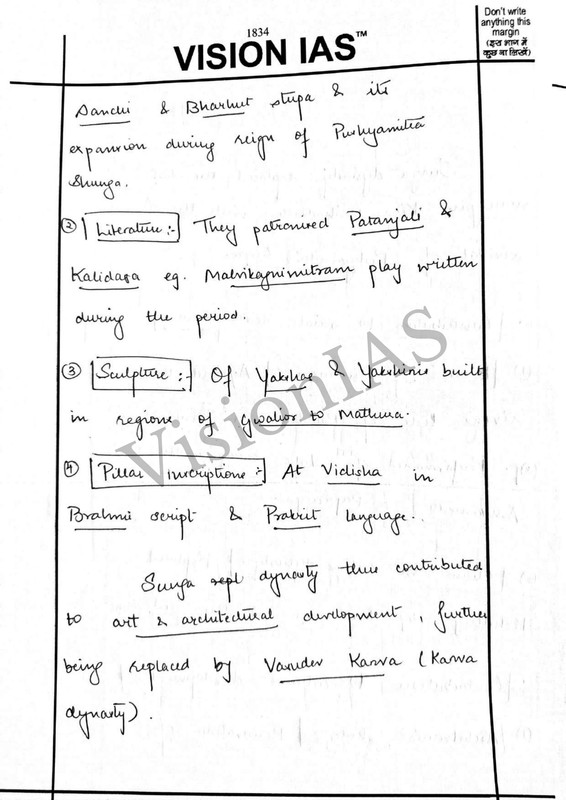 1834
VISION IAS™
Don't write
anything this
margin
(इस भाग में
कुछ ना लिखें)
Sanchi & Bharhut stupa & its
expansion during reign of Pushyamitra
Shunga.
② Literature :- They patronised Patanjali &
Kalidasa eg. Malvikagnimitram play written
during the period.
③ Sculpture :- Of Yakshas & Yakshinis built
in regions of Gwalior to Mathura.
④ Pillar inscriptions :- At Vidisha in
Brahmi script & Prakrit language.
Sunga repl dynasty thus contributed
to art & architectural development, further
being replaced by Vasudev Kanva (Kanva
dynasty).
VisionIAS